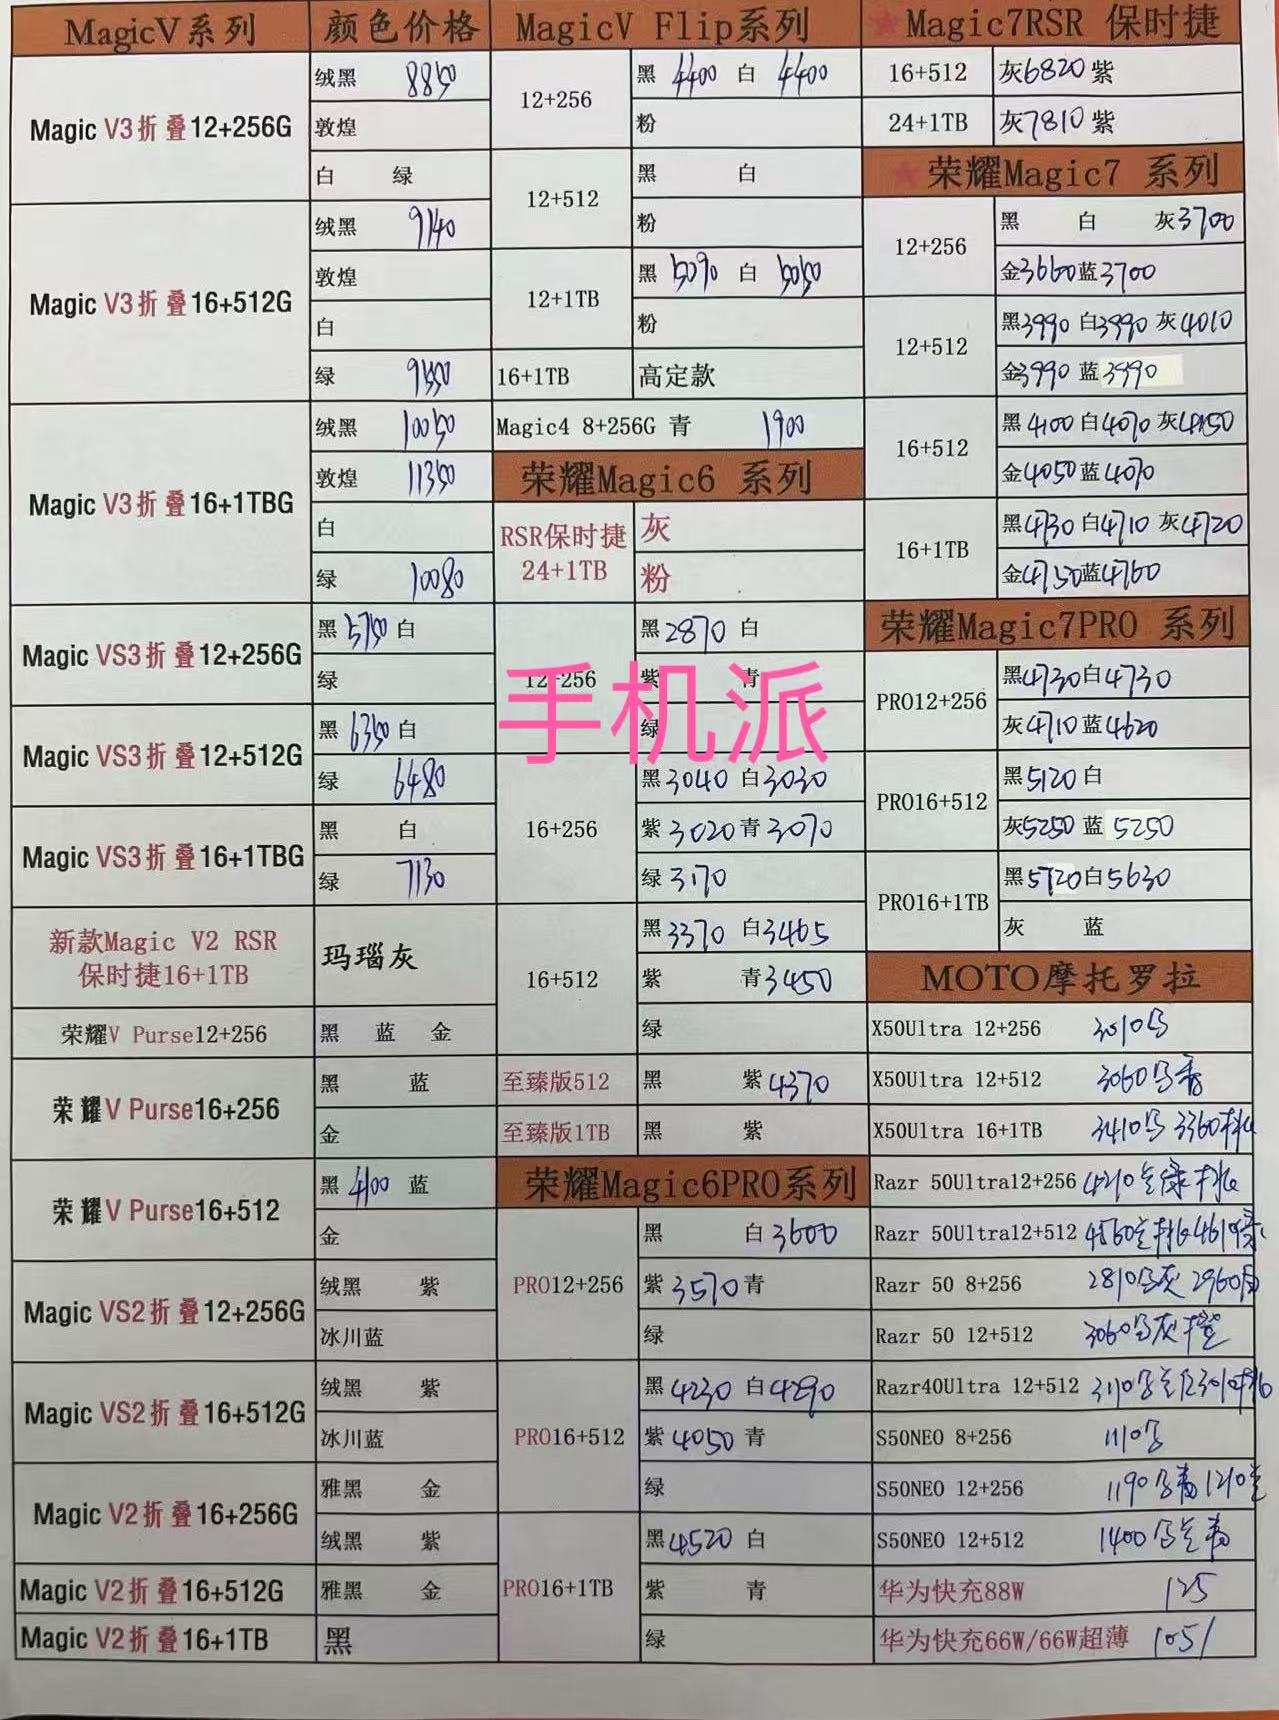 MagicV系列 颜色价格
Magic V3折叠12+256G
绒黑 8850
敦煌
白 绿
Magic V3折叠16+512G
绒黑 9140
敦煌
白
绿 9350
Magic V3折叠16+1TBG
绒黑 10050
敦煌 11350
白
绿 10080
Magic VS3折叠12+256G
黑 5750 白
绿
Magic VS3折叠12+512G
黑 6350 白
绿 6480
Magic VS3折叠16+1TBG
黑 白
绿 7130
新款Magic V2 RSR
保时捷16+1TB
玛瑙灰
荣耀V Purse12+256 黑 蓝 金
荣耀V Purse16+256
黑 蓝
金
荣耀V Purse16+512
黑 4100 蓝
金
Magic VS2折叠12+256G
绒黑 紫
冰川蓝
Magic VS2折叠16+512G
绒黑 紫
冰川蓝
Magic V2折叠16+256G
雅黑 金
绒黑 紫
Magic V2折叠16+512G 雅黑 金
Magic V2折叠16+1TB 黑
MagicV Flip系列
12+256
黑 4400 白 4400
粉
12+512
黑 白
粉
12+1TB
黑 5090 白 5050
粉
16+1TB 高定款
Magic4 8+256G 青 1900
荣耀Magic6 系列
RSR保时捷
24+1TB
灰
粉
12+256
黑2870 白
紫 青
绿
手机派
16+256
黑3040 白3030
紫3020青3070
绿3170
16+512
黑3370 白3465
紫 青3450
绿
至臻版512 黑 紫4370
至臻版1TB 黑 紫
荣耀Magic6PRO系列
PRO12+256
黑 白3600
紫3570青
绿
PRO16+512
黑4230 白4290
紫4050青
绿
PRO16+1TB
黑4520 白
紫 青
绿
Magic7RSR 保时捷
16+512 灰6820 紫
24+1TB 灰7810 紫
荣耀Magic7 系列
12+256
黑 白 灰3700
金3660蓝3700
12+512
黑3990 白3990 灰4010
金3990 蓝3990
16+512
黑4100白4070灰4150
金4050蓝4070
16+1TB
黑4730白4710 灰4720
金4750蓝4760
荣耀Magic7PRO 系列
PRO12+256
黑4730白4730
灰4710蓝4620
PRO16+512
黑5120白
灰5250 蓝 5250
PRO16+1TB
黑5720白5630
灰 蓝
MOTO摩托罗拉
X50Ultra 12+256 3010
X50Ultra 12+512 3060
X50Ultra 16+1TB 3410 3360
Razr 50Ultra12+256 4210 绿
Razr 50Ultra12+512 4560
Razr 50 8+256 2810 灰 2960
Razr 50 12+512 3060 灰 橙
Razr40Ultra 12+512 3110
S50NEO 8+256 1110
S50NEO 12+256 1190 1210
S50NEO 12+512 1400
华为快充88W 125
华为快充66W/66W超薄 105/